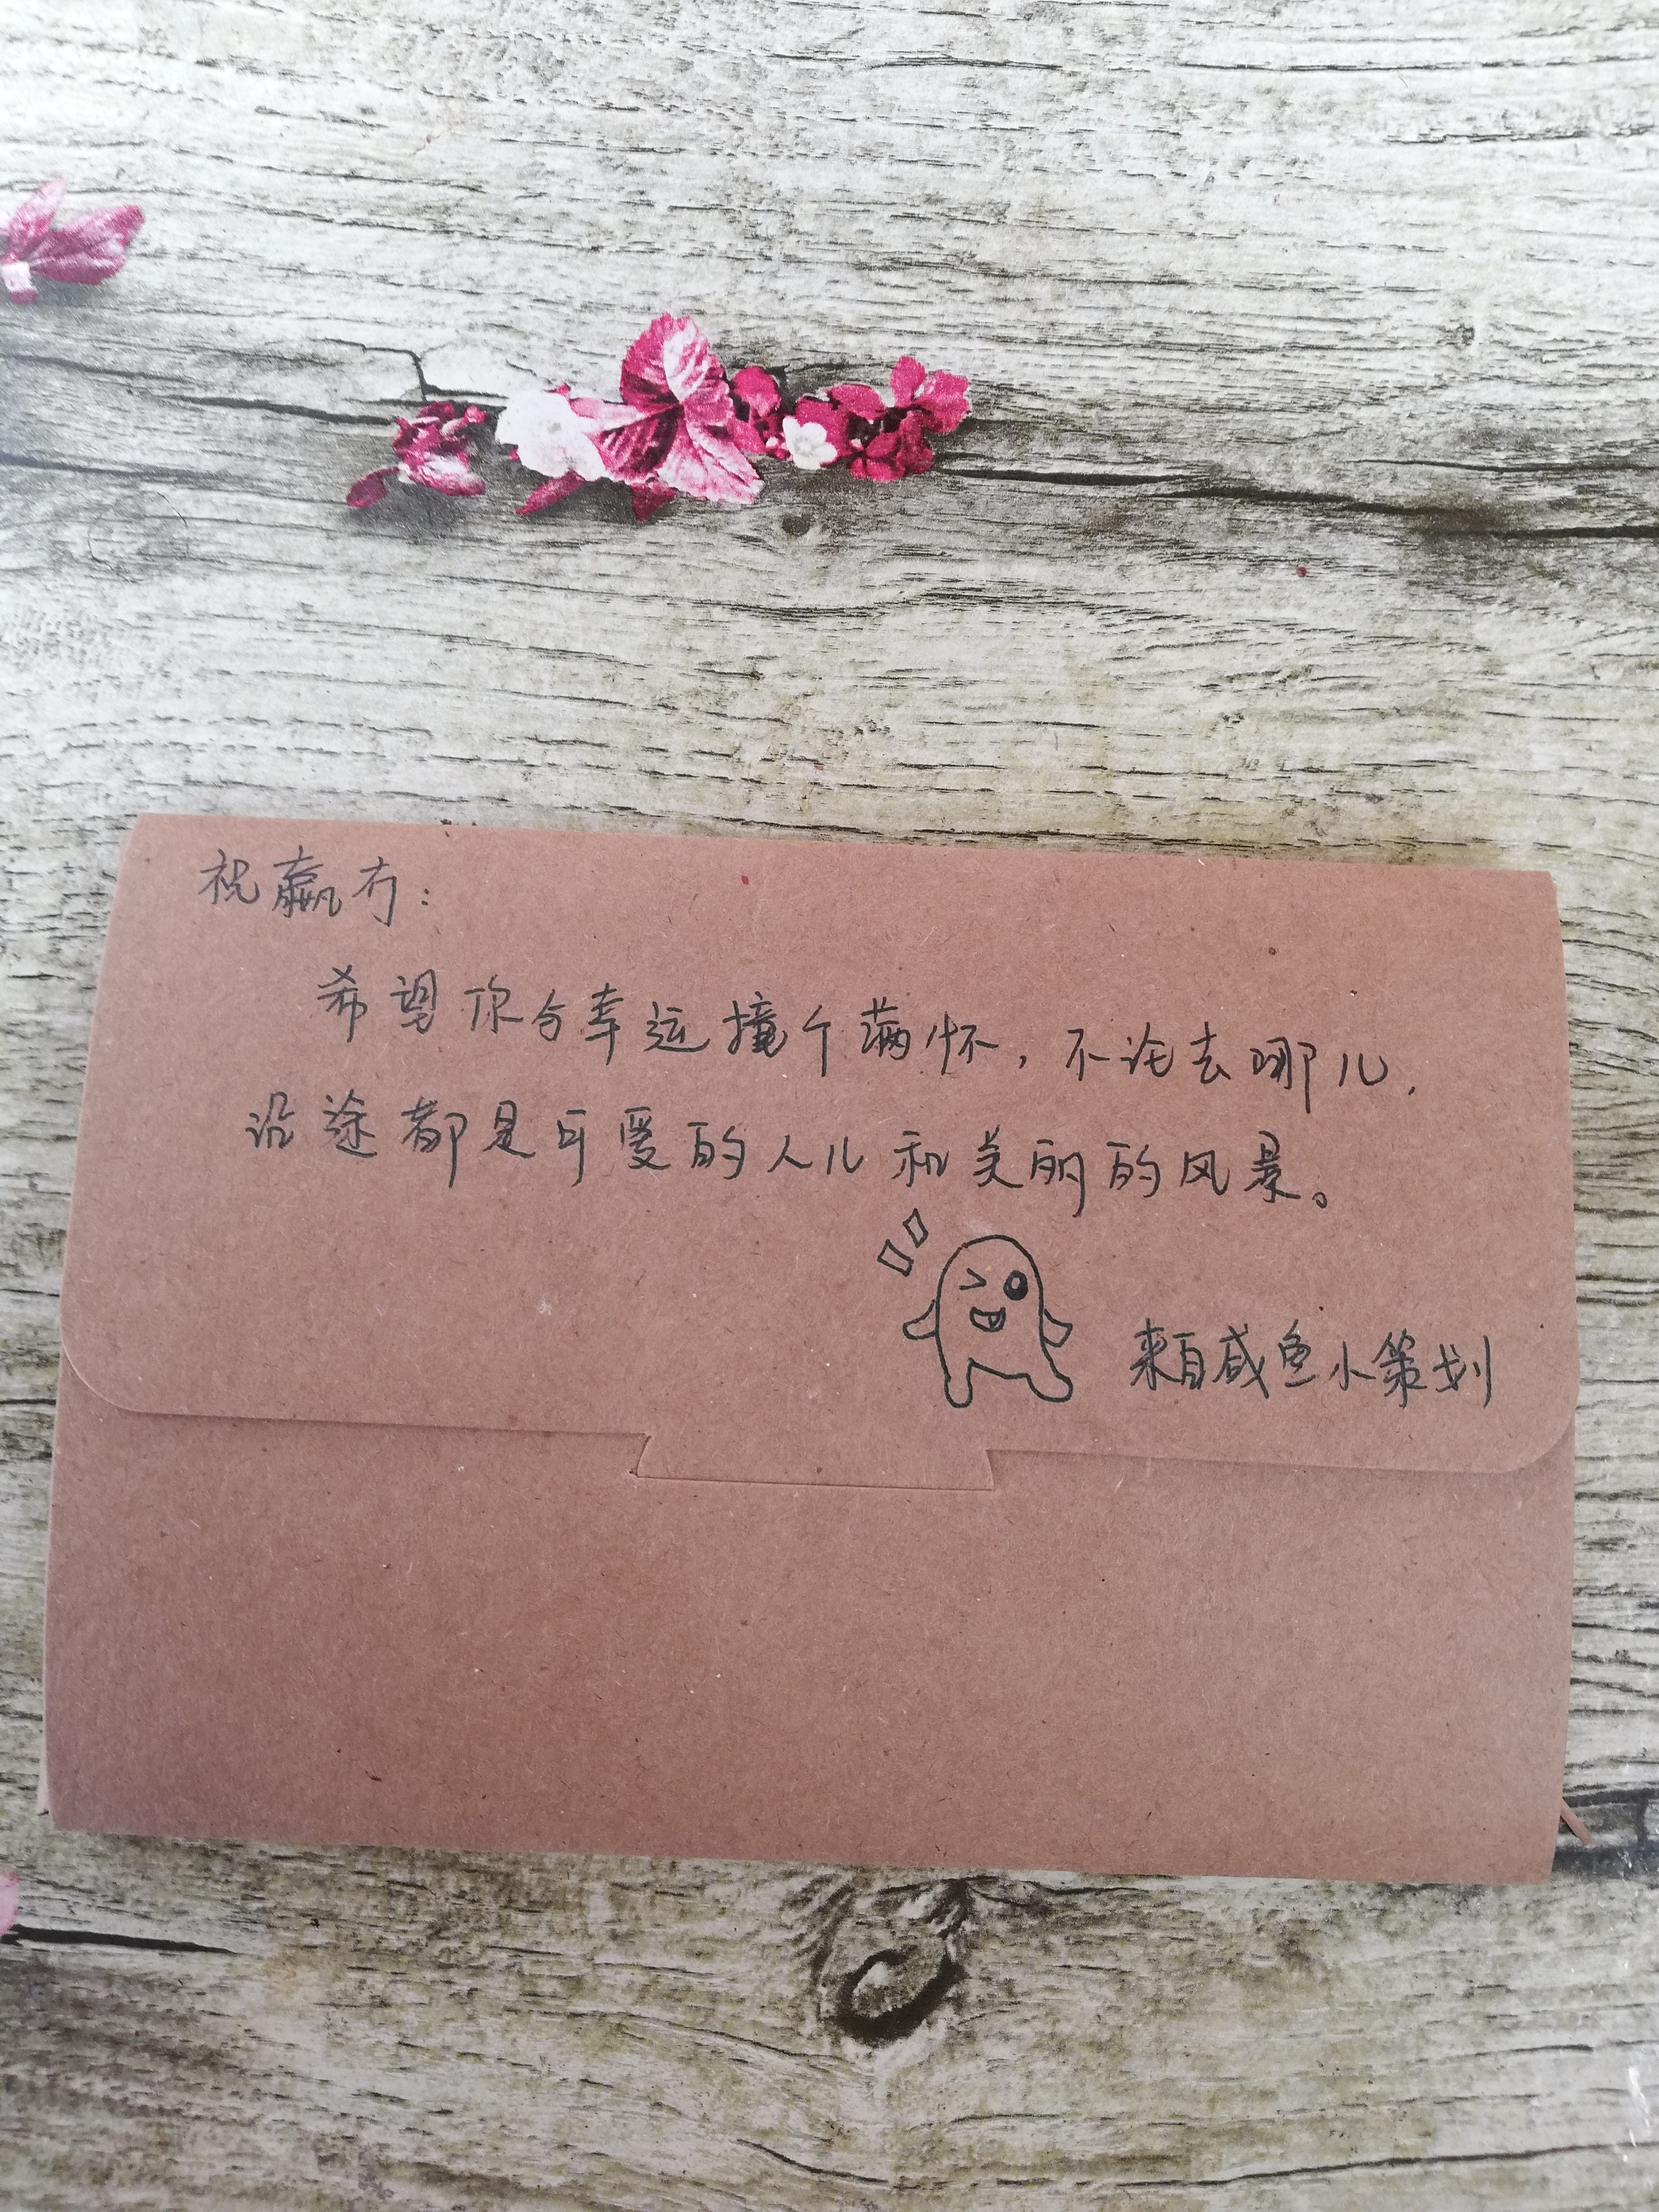 祝赢冇：
希望你与幸运撞个满怀，不论去哪儿，
沿途都是可爱的人儿和美丽的风景。
来自咸鱼小策划